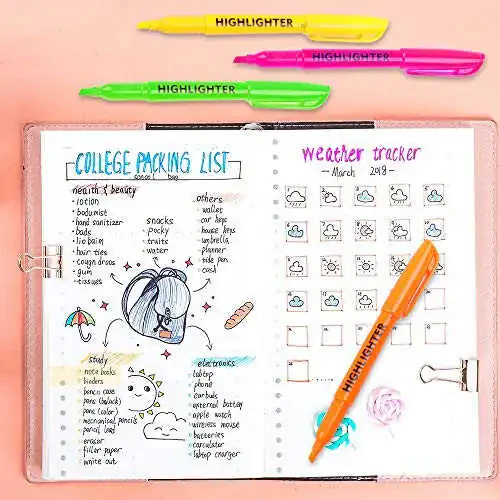 HIGHLIGHTER
HIGHLIGHTER
HIGHLIGHTER
COLLEGE PACKING LIST
health & beauty
• lotion
• bodymist
• hand sanitizer
• bads
• lie balm
• hair ties
• cough droos
• gum
• tissues
snacks
• pocky
• fruits
• water
others
• wallet
• car keys
• house keys
• umbrella
• planner
• side pen
• cash
study
• note books
• binders
• pencil case
• pens (black)
• pens (color)
• mechanical pencils
• pencil lead
• eraser
• filler paper
• white out
electronics
• labtop
• phone
• earbuds
• external battery
• apple watch
• wireless mouse
• batteries
• carculator
• labtop charger
weather tracker
- March 2018 -
HIGHLIGHTER